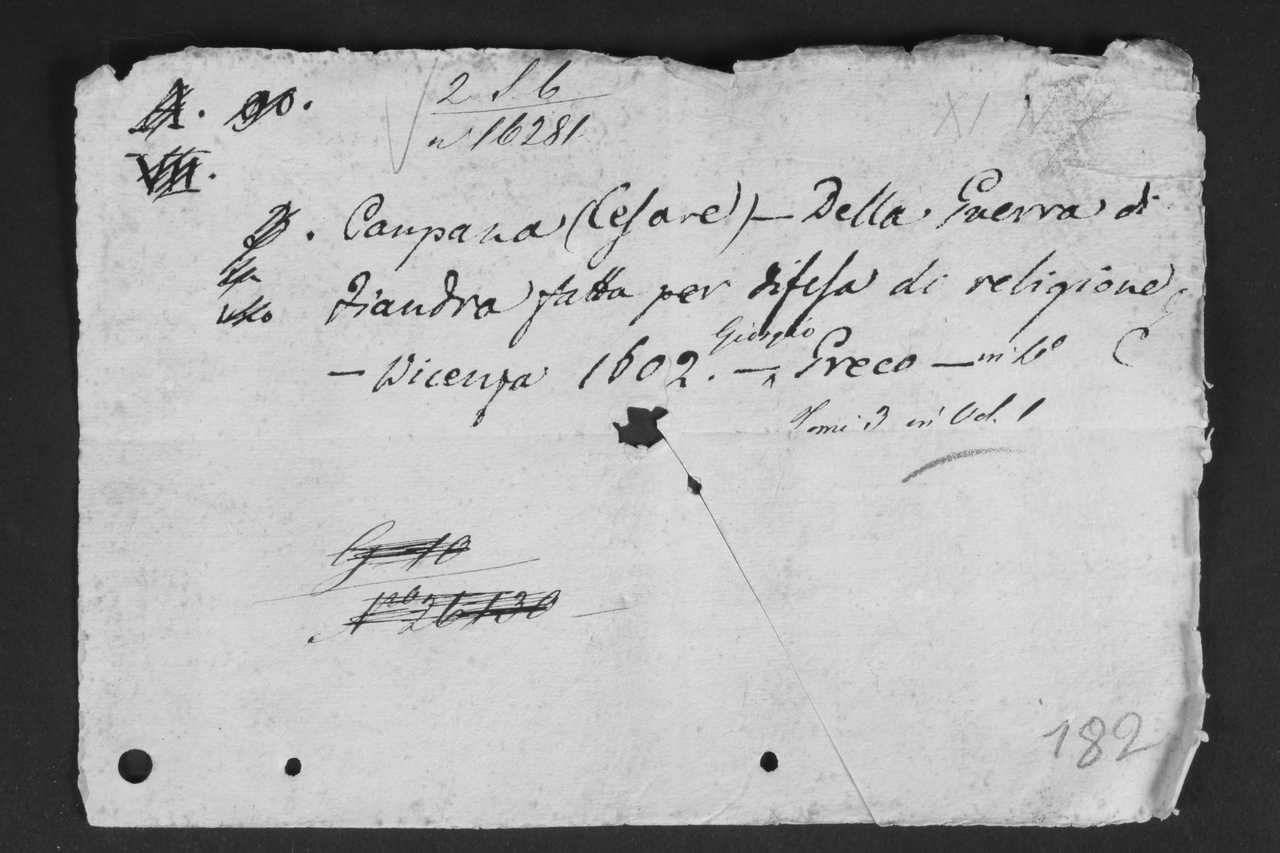 90.
2 S 6
n° 16281
VIII.
Campana (Cesare) — Della Guerra di
Fiandra fatta per difesa di religione
— Vicenza 1602. — Giorgio Greco — in 4° C
Tomi 3 in Vol. 1
N° 26130
182